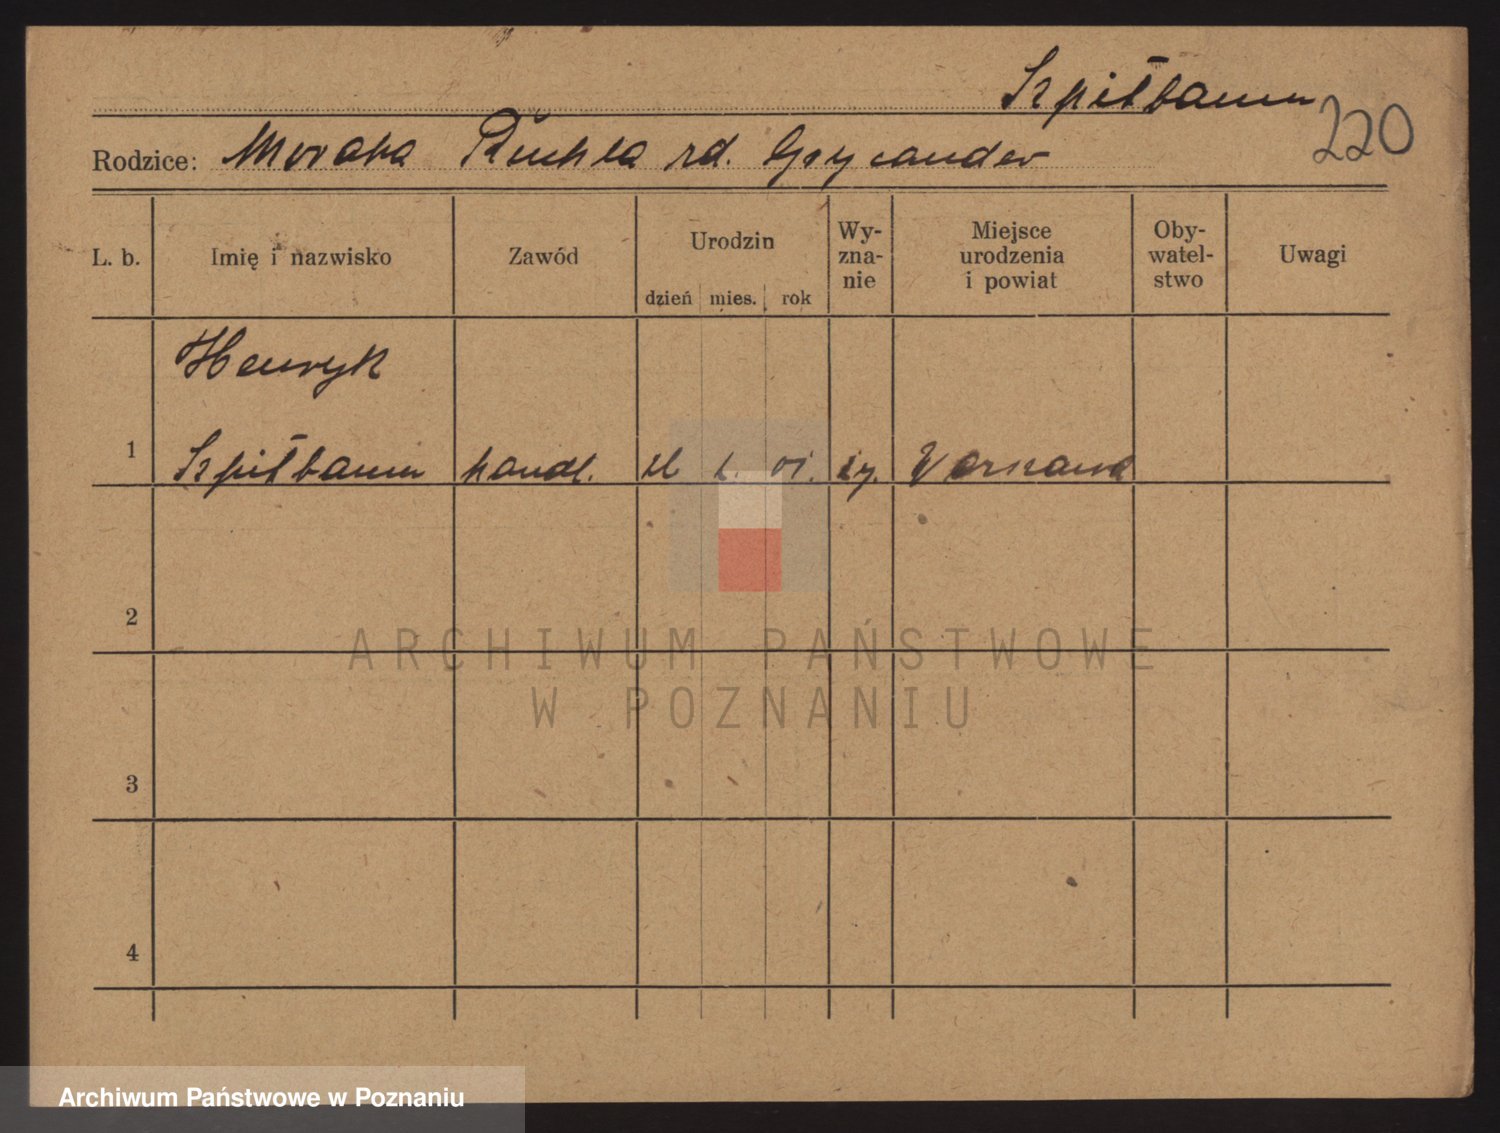 Szpitbaum
220
Rodzice: Ruchla rd.
L. b. Imię i nazwisko Zawód Urodzin dzień mies. rok Wy-zna-nie Miejsce urodzenia i powiat Oby-watel-stwo Uwagi
Henryk
1 Szpitbaum handl.
2
3
4
ARCHIWUM PAŃSTWOWE
W POZNANIU
Archiwum Państwowe w Poznaniu